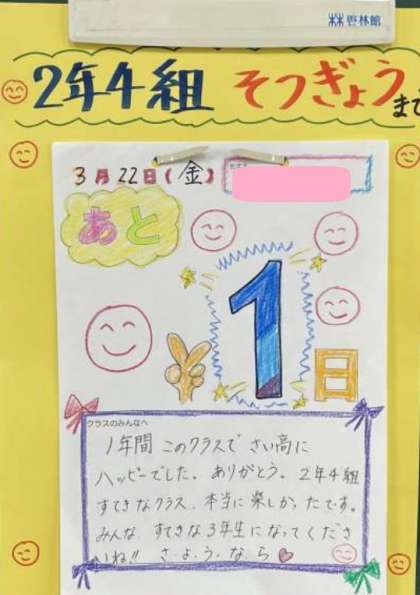 雲林館
2年4組 そつぎょうまで
3月22日(金)
あと
1日
クラスのみんなへ
1年間 このクラスで さい高に
ハッピーでした。ありがとう。2年4組
すてきなクラス、本当に楽しかったです。
みんな、すてきな3年生になってくださ
いね!! さ・よ・う・な・ら♥